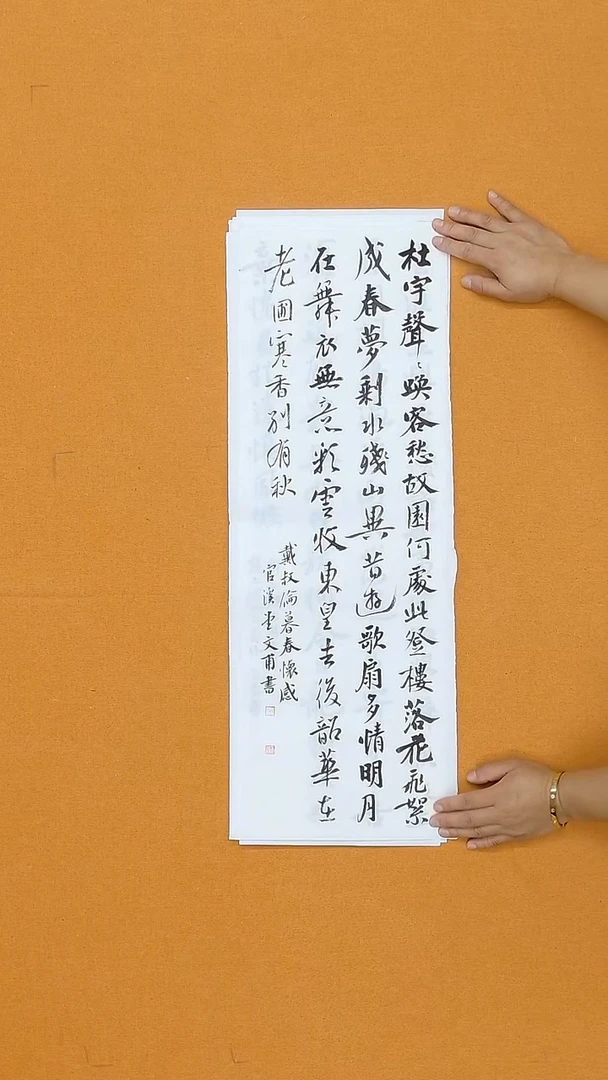 杜宇聲〻喚客愁故園何處此登樓落花飛絮
成春夢剩水殘山異昔遊歌扇多情明月
在舞衣無意彩雲收東皇去後韶華
老圃寒香別有秋
戴叔倫暮春懷感
官溪堂文甫書